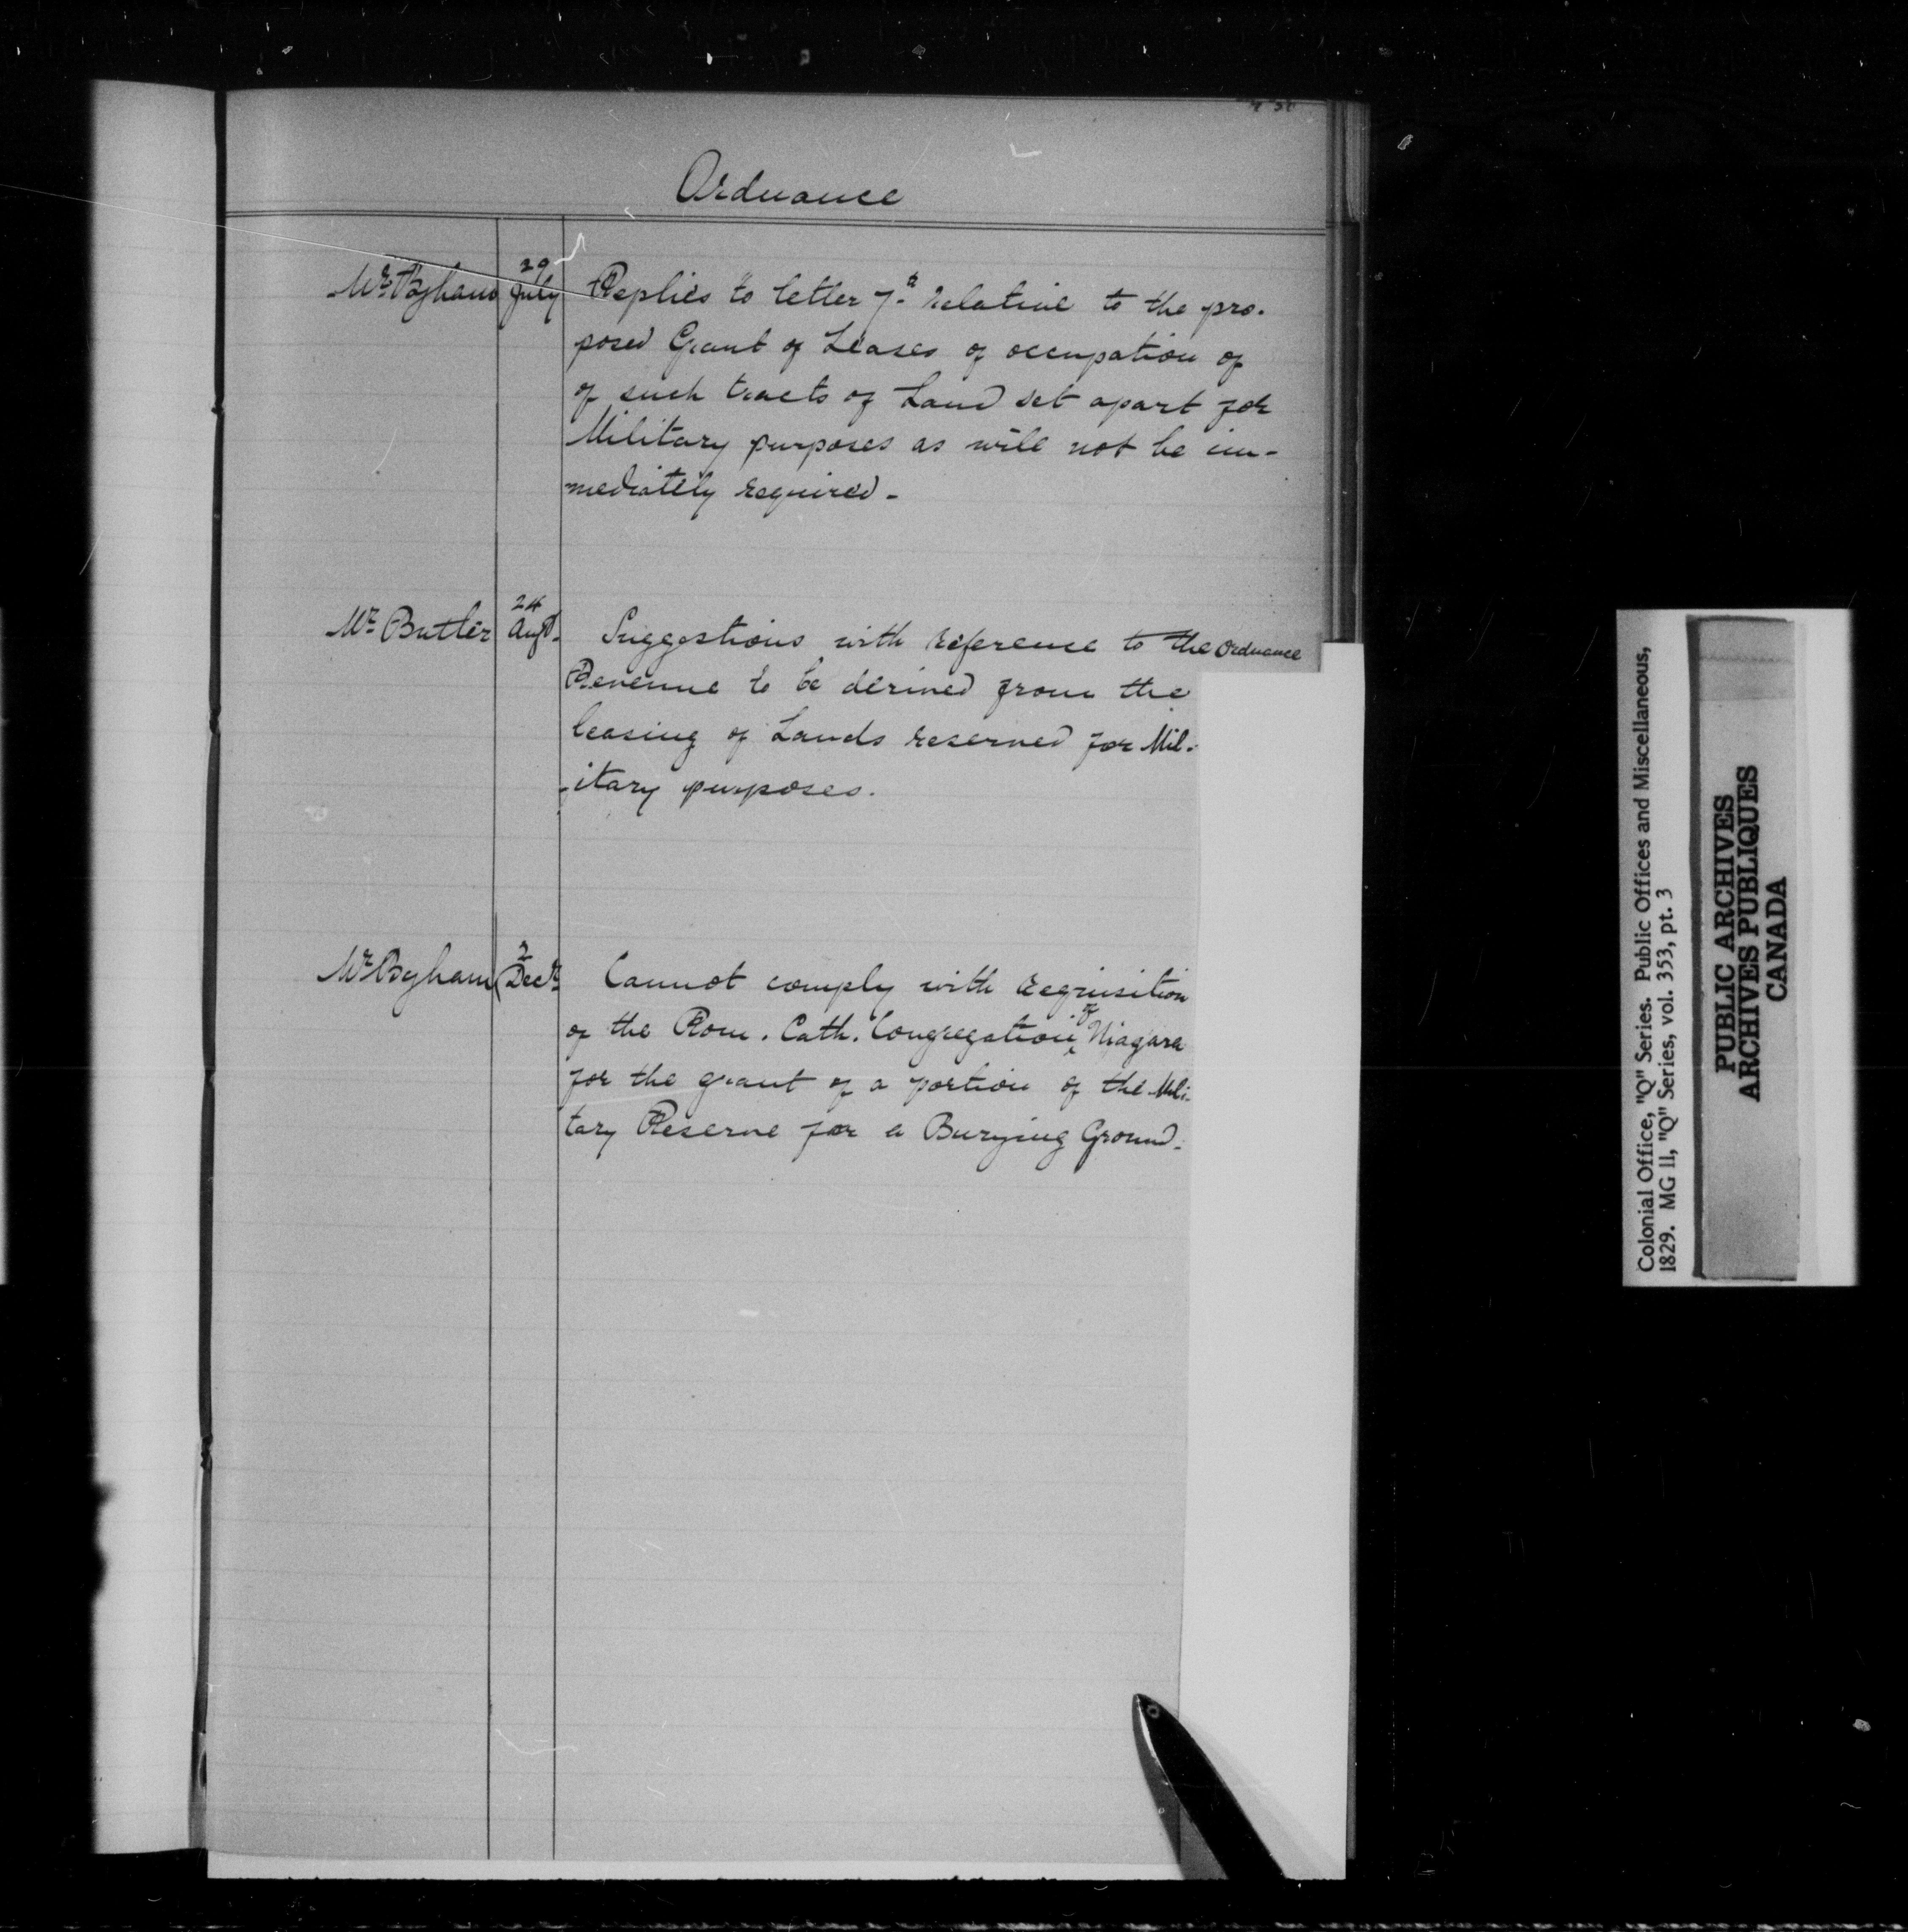 Ordnance
Mr. Byham 29 July Replies to letter 7th relative to the pro-
posed Grant of Leases of occupation of
of such tracts of Land set apart for
Military purposes as will not be im-
mediately required-
Mr. Butler 24 Augt. Suggestions with reference to the Ordnance
Revenue to be derived from the
leasing of Lands reserved for Mil-
itary purposes.
Mr. Byham 2 Decr. Cannot comply with requisition
of the Rom. Cath. Congregation of Niagara
for the grant of a portion of the Mili-
tary Reserve for a Burying Ground.
Colonial Office, "Q" Series. Public Offices and Miscellaneous,
1829. MG 11, "Q" Series, vol. 353, pt. 3
PUBLIC ARCHIVES
ARCHIVES PUBLIQUES
CANADA